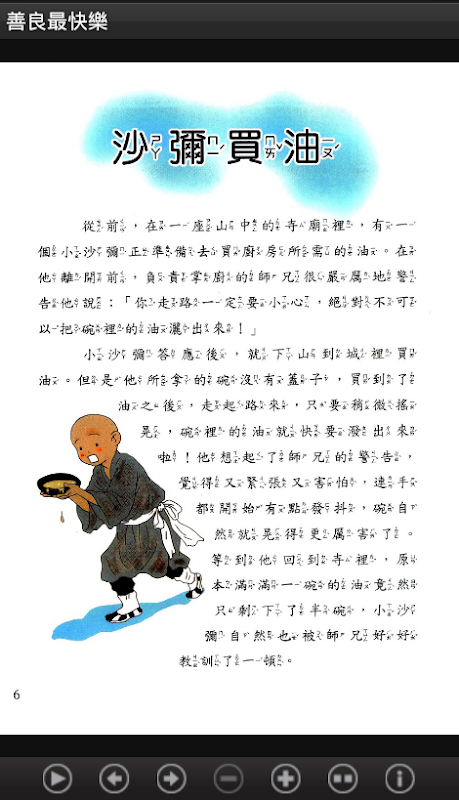 善良最快樂
沙彌買油
從前，在一座山中的寺廟裡，有一
個小沙彌正準備去買廚房所需的油。在
他離開前，負責掌廚的師兄很嚴厲地警
告他說：「你走路一定要小心，絕對不可
以把碗裡的油灑出來！」
小沙彌答應後，就下山到城裡買
油。但是他所拿的碗沒有蓋子，買到了
油之後，走起路來，只要稍微搖
晃，碗裡的油就快要潑出來
啦！他想起了師兄的警告，
覺得又緊張又害怕，連手
都開始有點發抖，碗自
然就晃得更厲害了。
等到他回到寺裡，原
本滿滿一碗的油竟然
只剩下了半碗，小沙
彌自然也被師兄好好
教訓了一頓。
6